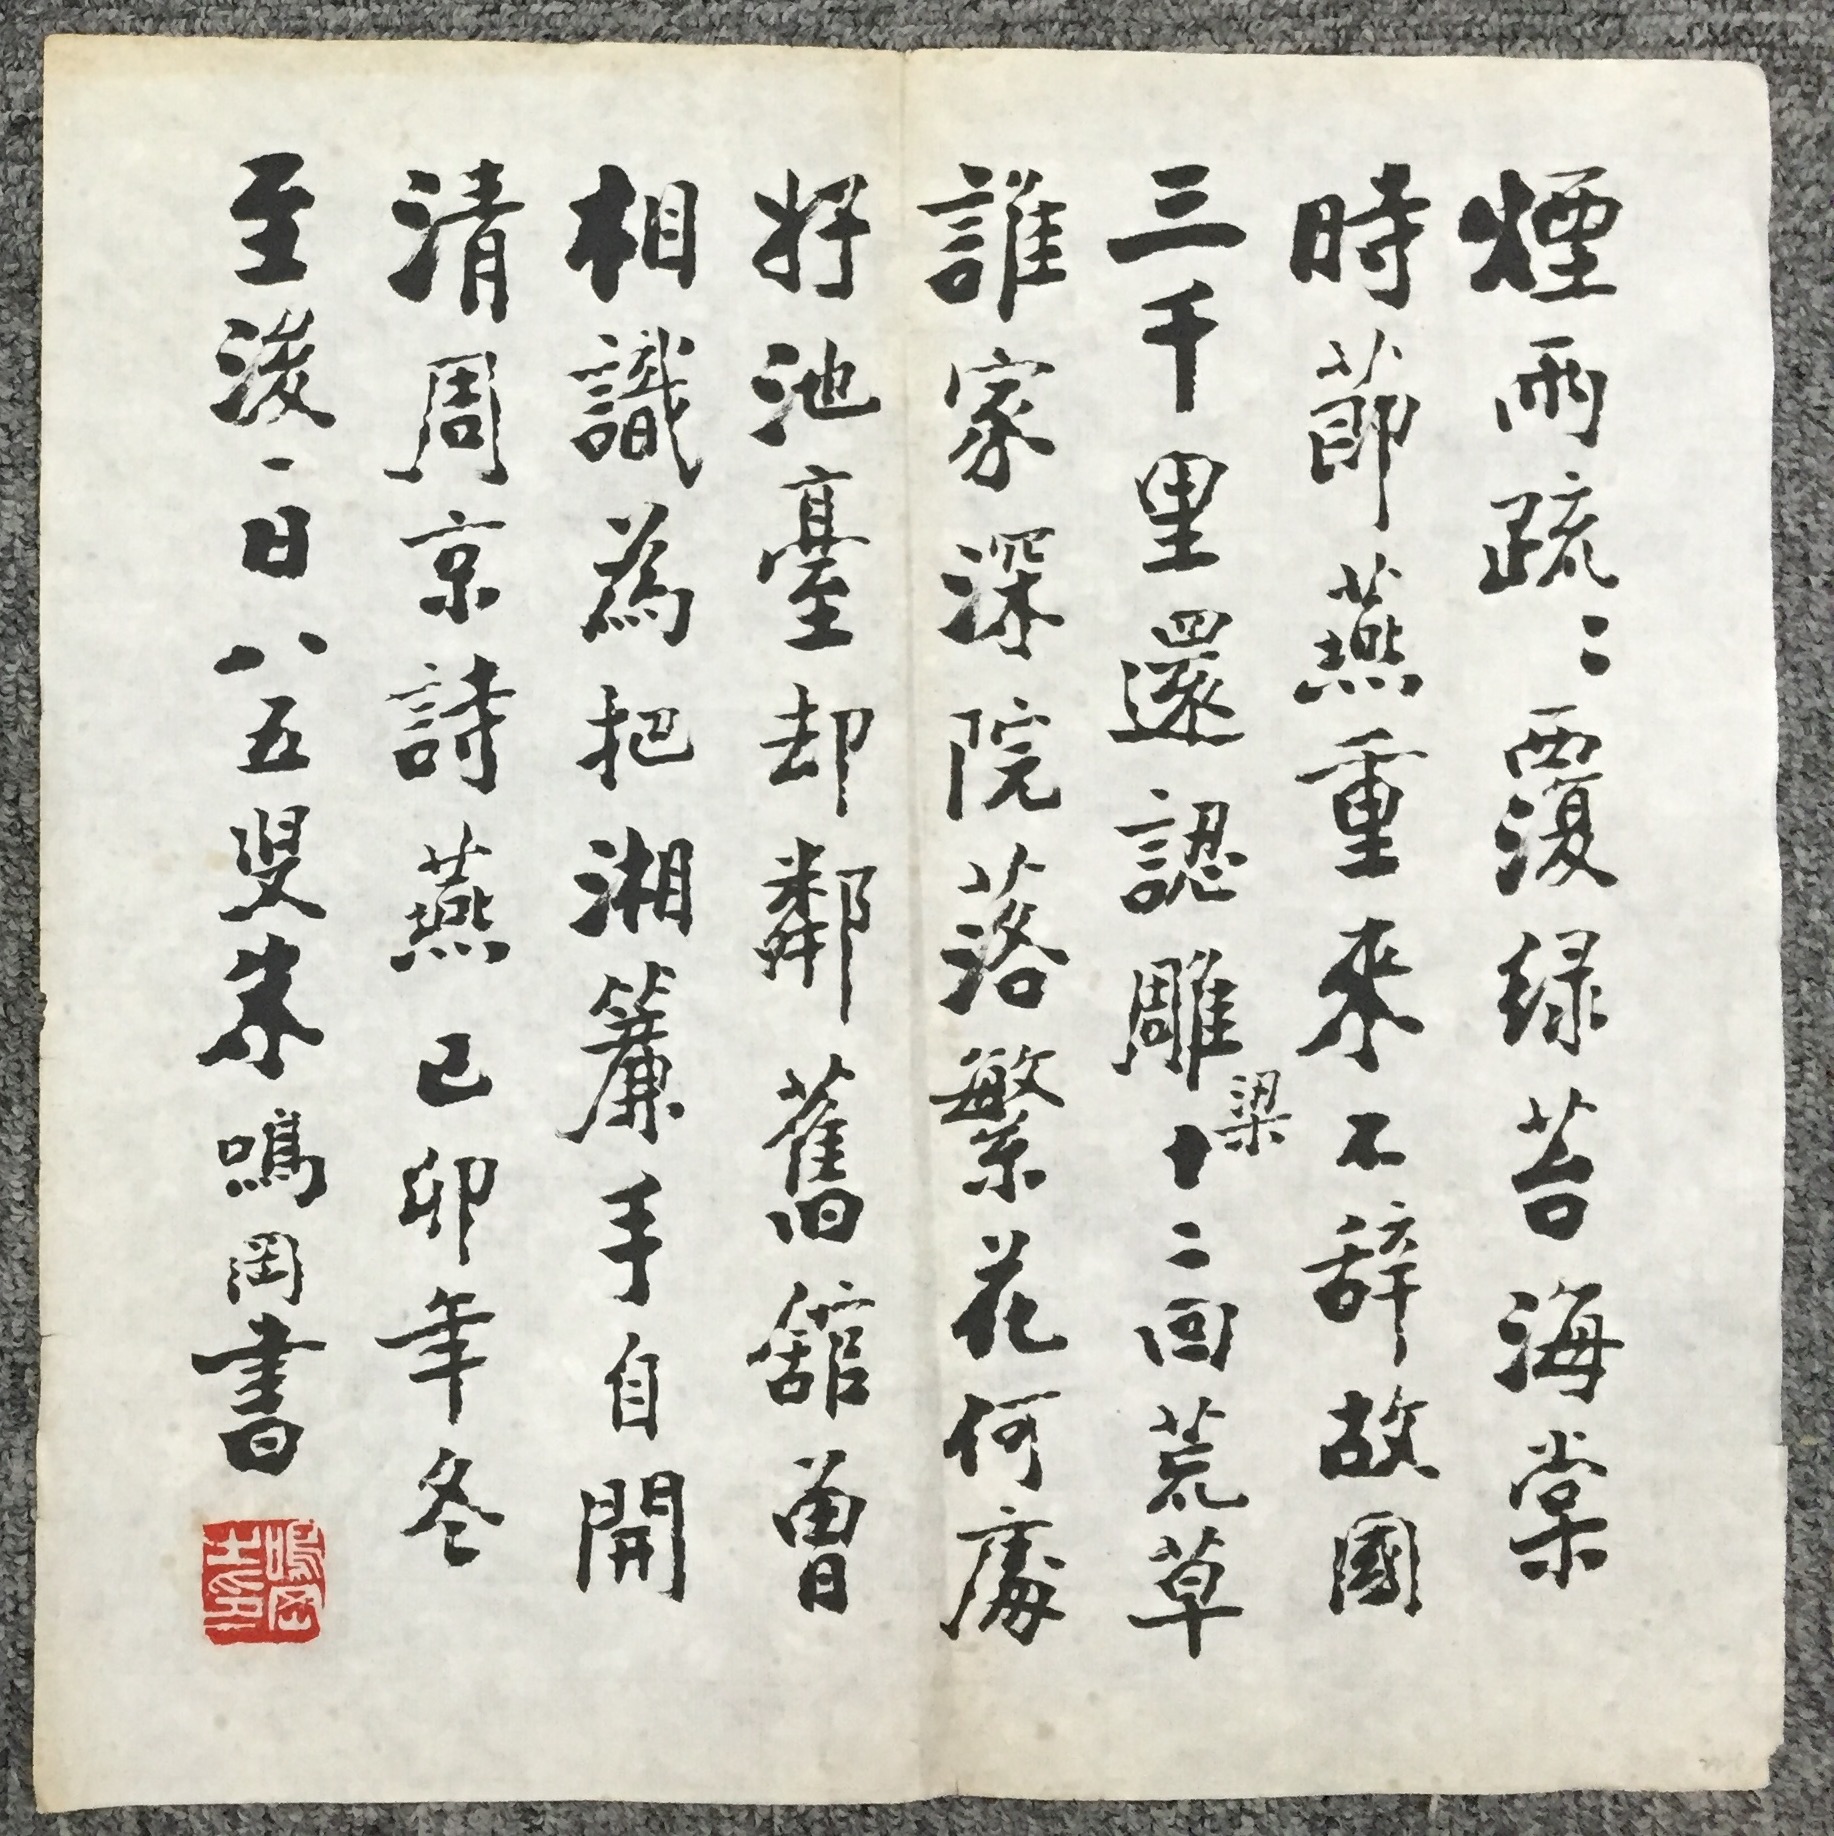 煙雨疏〻覆绿苔海棠
時節燕重來不辭故國
三千里還認雕梁十二回荒草
誰家深院落繁花何處
好池臺却鄰舊舘曾
相識為把湘簾手自開
清周京詩燕己卯年冬
至後一日八五叟朱鳴岡書
鳴岡